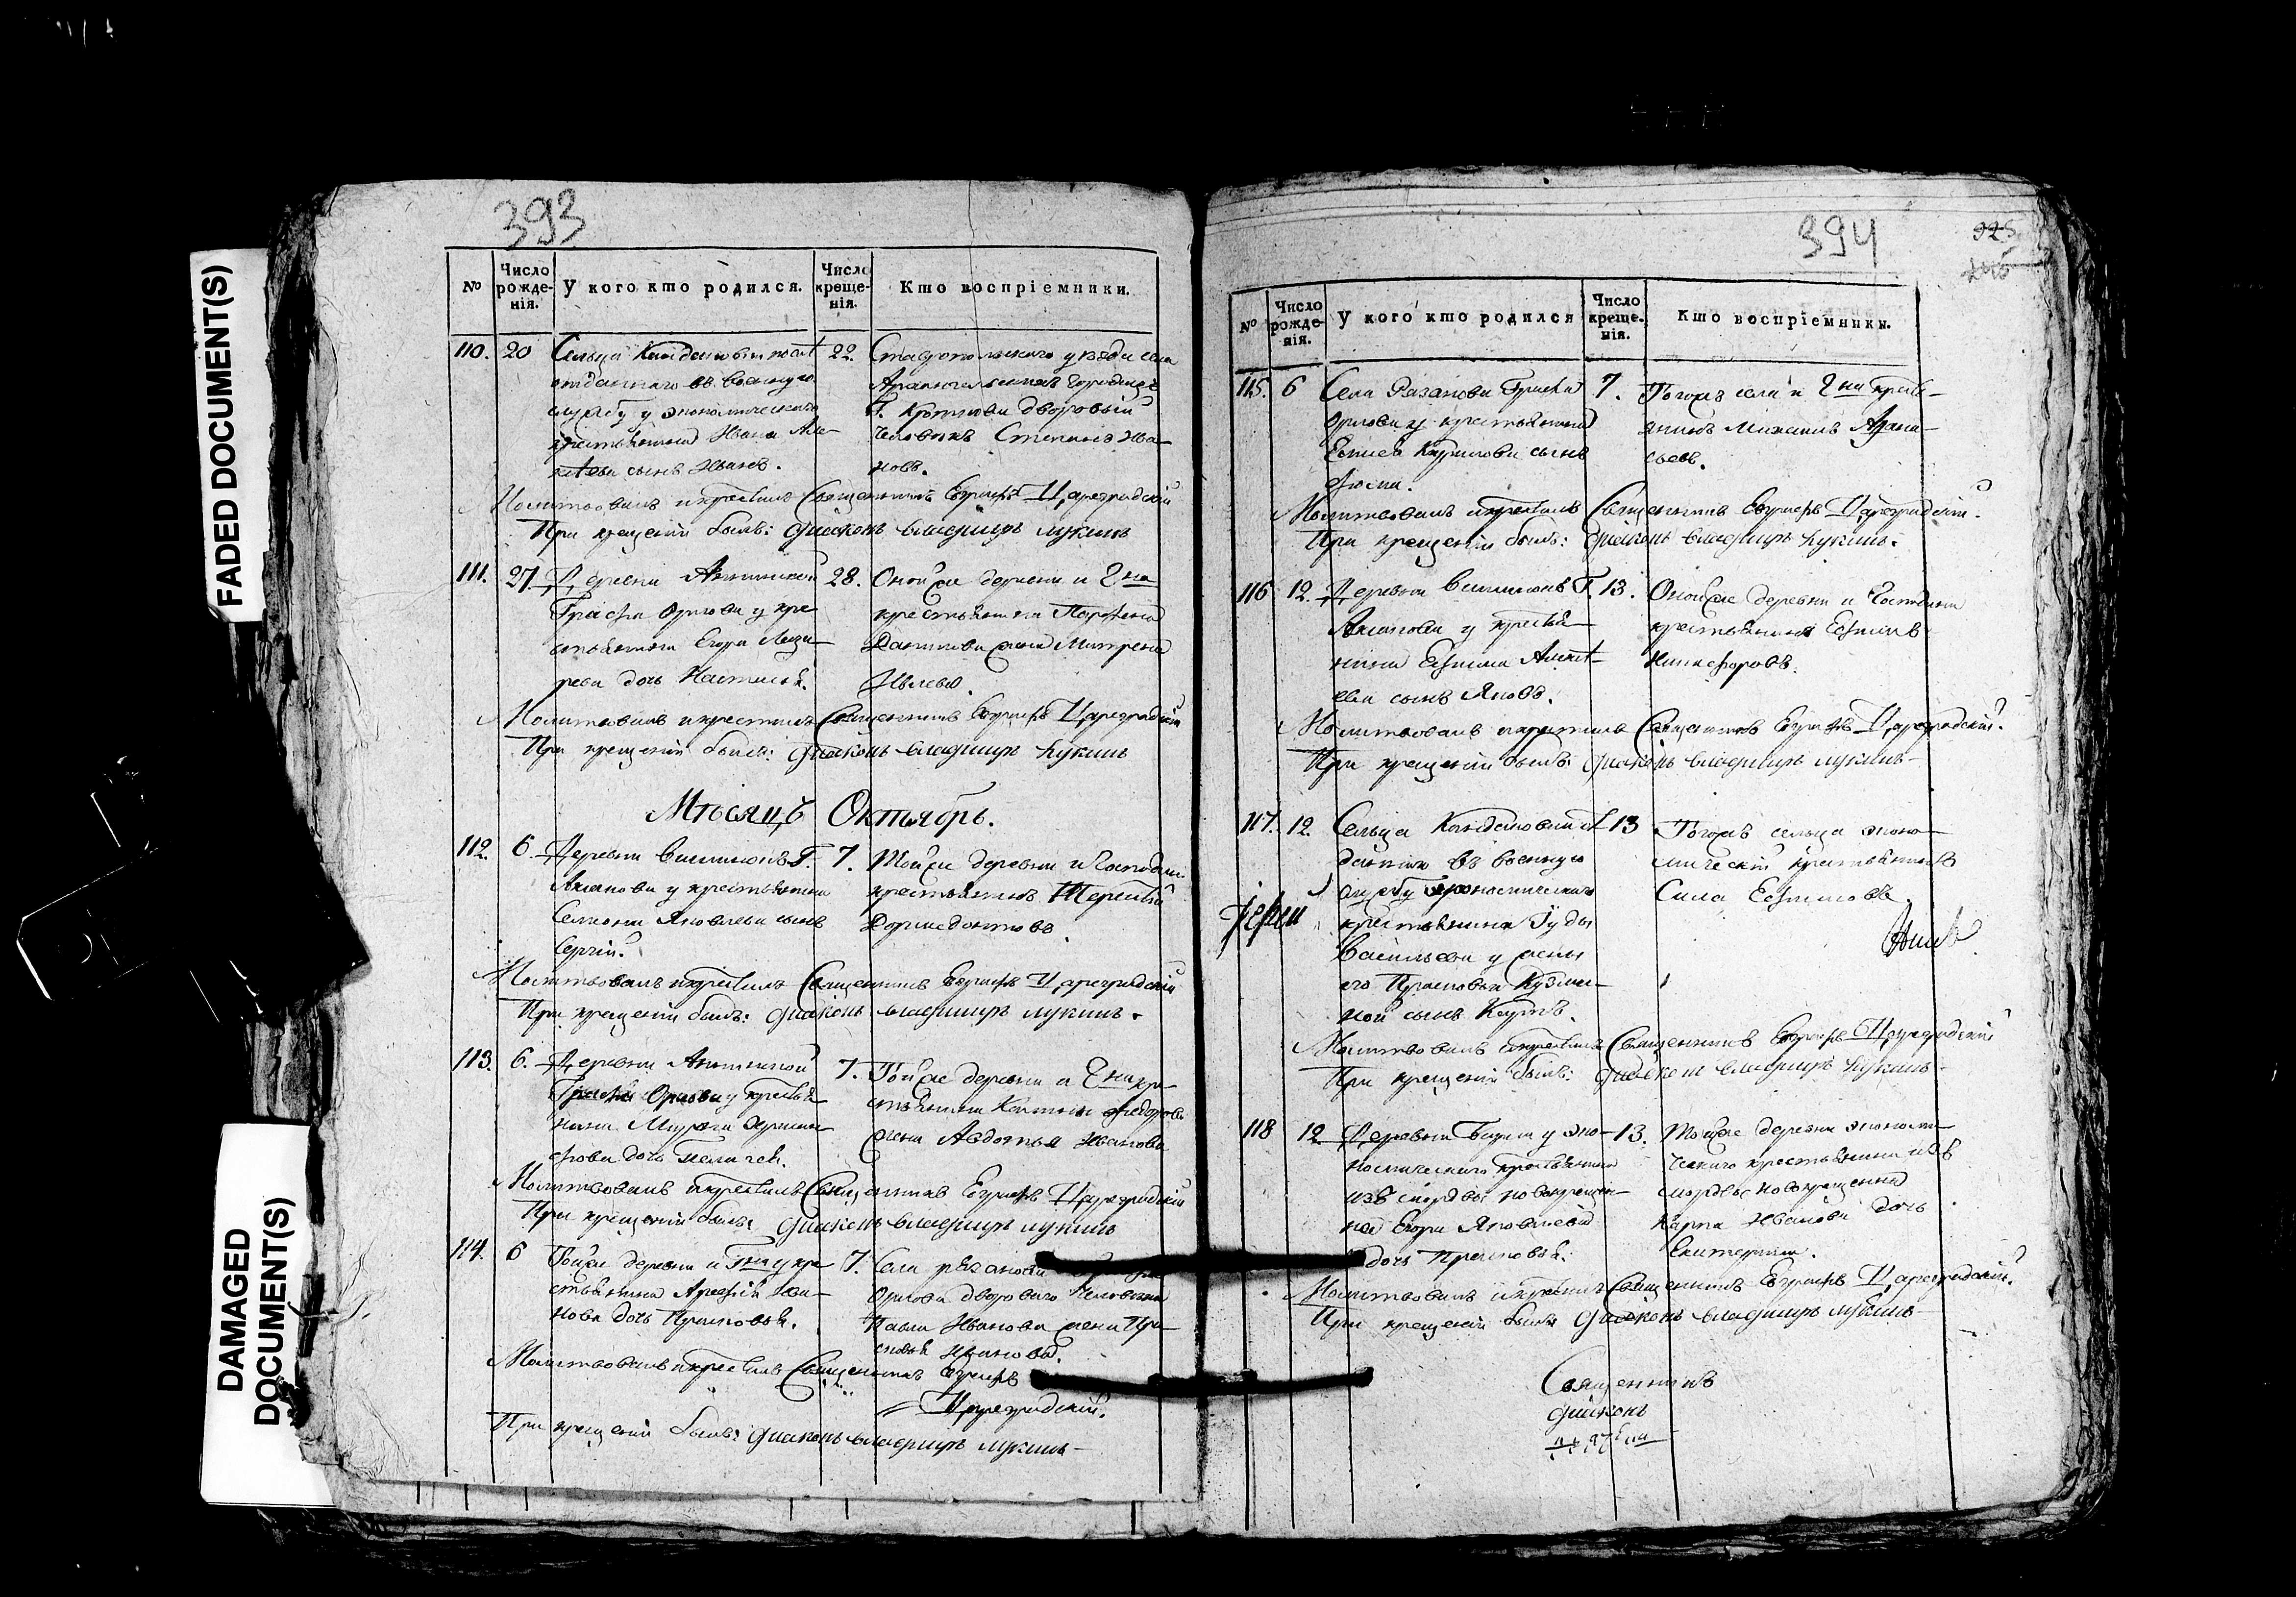 FADED DOCUMENT(S)
DAMAGED
DOCUMENT(S)
393
№
Число рожденія.
У кого кто родился.
Число крещенія.
Кто воспріемники.
110. 20
22.
отданнаго въ военную
службу у экономическаго
крестьянина Ивана
сынъ Иванъ.
Ставропольскаго уѣзда села
дворовый
человѣкъ Степанъ Ива-
новъ.
Молитвовалъ и крестилъ Священникъ Евграфъ Цареградскій
При крещеніи былъ: Діаконъ Владиміръ Лукинъ
111. 27. Деревни
Графа Орлова у кре-
стьянина Егора Лаза-
рева дочь Настасья.
28. Оной же деревни и Гна
крестьянина
жена Матрена
Молитвовалъ и крестилъ Священникъ Евграфъ Цареградскій
При крещеніи былъ: Діаконъ Владиміръ Лукинъ
Мѣсяцъ Октябрь.
112. 6. Деревни Г.
у крестьянина
Семиона Яковлева сынъ
Сергій.
7. Той же деревни и Господина
крестьянинъ Терентій
Дормедонтовъ.
Молитвовалъ и крестилъ Священникъ Евграфъ Цареградскій
При крещеніи былъ: Діаконъ Владиміръ Лукинъ.
113. 6. Деревни
Графа Орлова у крестья-
нина
дочь Пелагея.
7. Той же деревни и Гна кре-
стьянина Федорова
жена Авдотья Иванова
Молитвовалъ и крестилъ Священникъ Евграфъ Цареградскій
При крещеніи былъ: Діаконъ Владиміръ Лукинъ
114. 6 Той же деревни и Гна у кре-
стьянина Ива-
нова дочь Прасковья.
7. Села Рязанова
Орлова двороваго человѣка
Павла Иванова жена Пра-
сковья Иванова.
Молитвовалъ и крестилъ Священникъ Евграфъ
Цареградскій.
При крещеніи былъ: Діаконъ Владиміръ Лукинъ
394
№
Число рожденія.
У кого кто родился
Число крещенія.
Кто воспріемники.
115. 6 Села Рязанова Графа
Орлова у крестьянина
Кирилова сынъ
7. Тогожъ села и Гна кресть-
янинъ Михаилъ Афана-
сьевъ.
Молитвовалъ и крестилъ Священникъ Евграфъ Цареградскій.
При крещеніи былъ: Діаконъ Владиміръ Лукинъ.
116 12. Деревни Г.
у крестья-
нина Ефима Алексѣ-
ева сынъ Яковъ.
13. Оной же деревни и Господина
крестьянинъ Ефимъ
Никифоровъ.
Молитвовалъ и крестилъ Священникъ Евграфъ Цареградскій.
При крещеніи былъ: Діаконъ Владиміръ Лукинъ
117. 12. Сельца
въ военную
службу экономическаго
крестьянина Іуды
Васильева у жены
его Прасковьи Кузми-
ной сынъ
13 Тогожъ сельца эконо-
мическій крестьянинъ
Сила Ефимовъ.
Молитвовалъ и крестилъ Священникъ Евграфъ Цареградскій
При крещеніи былъ: Діаконъ Владиміръ Лукинъ
118 12 Деревни у эко-
номическаго крестьянина
изъ мордвы новокрещен-
на Егора Яковлева
дочь Прасковья.
13. Той же деревни экономи-
ческаго крестьянина изъ
мордвы новокрещенна
Карпа Иванова дочь
Екатерина.
Молитвовалъ и крестилъ Священникъ Евграфъ Цареградскій.
При крещеніи былъ Діаконъ Владиміръ Лукинъ
Священникъ
Діаконъ